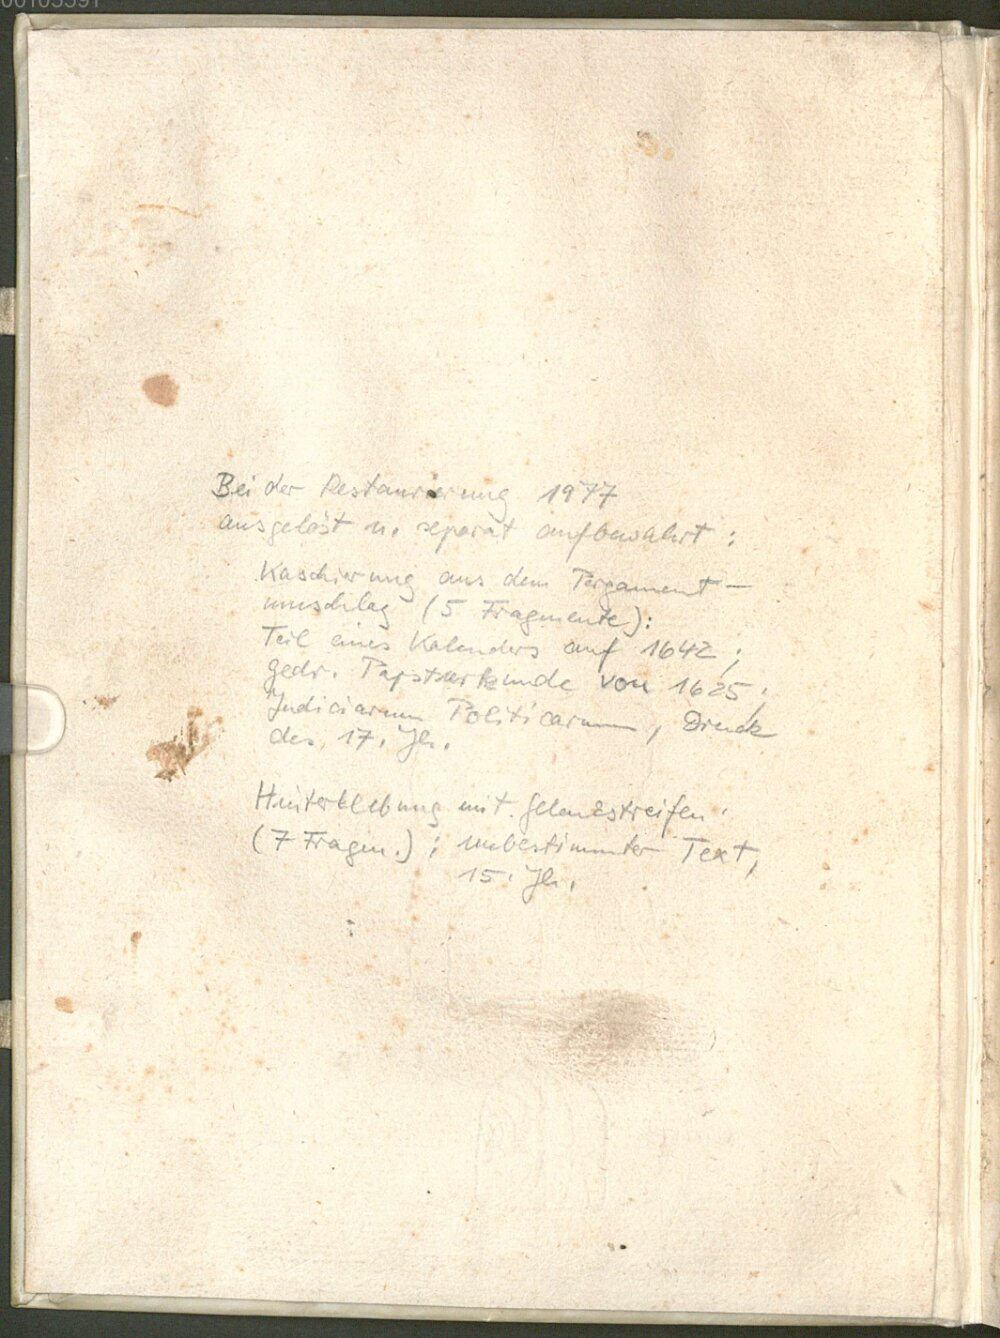 00103391
Bei der Restaurierung 1977
ausgelöst u. separat aufbewahrt :
Kaschierung aus dem Pergament-
umschlag (5 Fragmente):
Teil eines Kalenders auf 1642 ;
gedr. Papsturkunde von 1625 ;
Judiciarum Politicarum, Druck
des 17. Jh.
Hinterklebung mit Gelenkstreifen
(7 Fragm.) ; unbestimmter Text,
15. Jh.